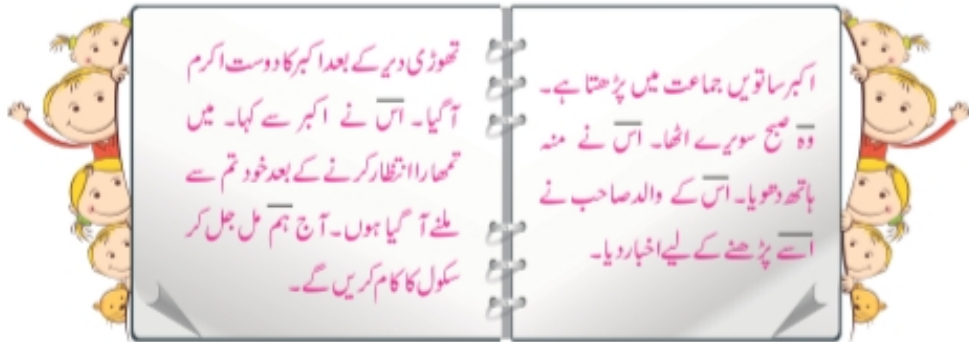 اکبر ساتویں جماعت میں پڑھتا ہے۔
وہ صبح سویرے اٹھا۔ اس نے منہ
ہاتھ دھویا۔ اس کے والد صاحب نے
اسے پڑھنے کے لیے اخبار دیا۔
تھوڑی دیر کے بعد اکبر کا دوست اکرم
آ گیا۔ اس نے اکبر سے کہا۔ میں
تمھارا انتظار کرنے کے بعد خود تم سے
ملنے آ گیا ہوں۔ آج ہم مل جل کر
سکول کا کام کریں گے۔